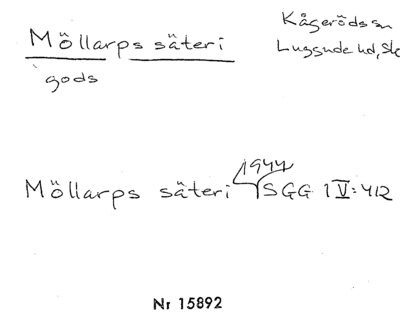 Möllarps säteri
gods
Kågeröds sn
Luggude hd, Sk
1944
Möllarps säteri SGG IV:412
Nr 15892